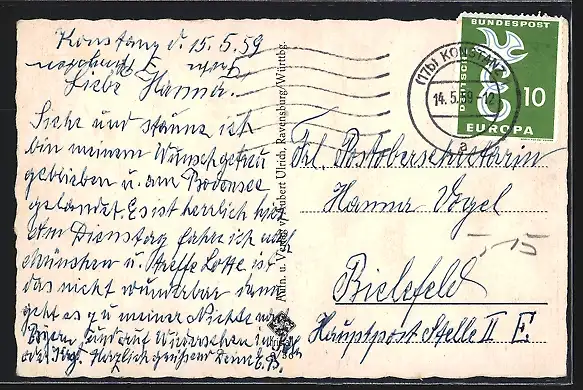 Konstanz d. 15.5.59
Liebe Hanna.
Siehe und staune ich
bin meinem Wunsch getreu
geblieben u. am Bodensee
gelandet. Es ist herrlich hier
Am Dienstag fahre ich nach
München u. treffe Lotte ist
das nicht wunderbar dann
geht es zu meiner Nichte nach
Bayern. Auf Wiedersehen
Herzlich grüssend Deine
Aufn. u. Verlag v. Hubert Ulrich, Ravensburg/Württbg.
DEUTSCHE BUNDESPOST
10
EUROPA
(17b) KONSTANZ
14.5.59-12
a
Frl. Postobersekretärin
Hanna Vogel
Bielefeld
Hauptpost Stelle II E.